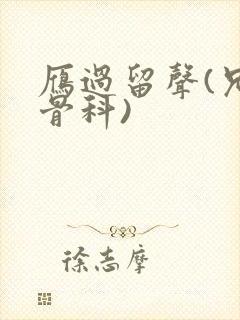 雁過留聲(兄
骨科)
徐志摩